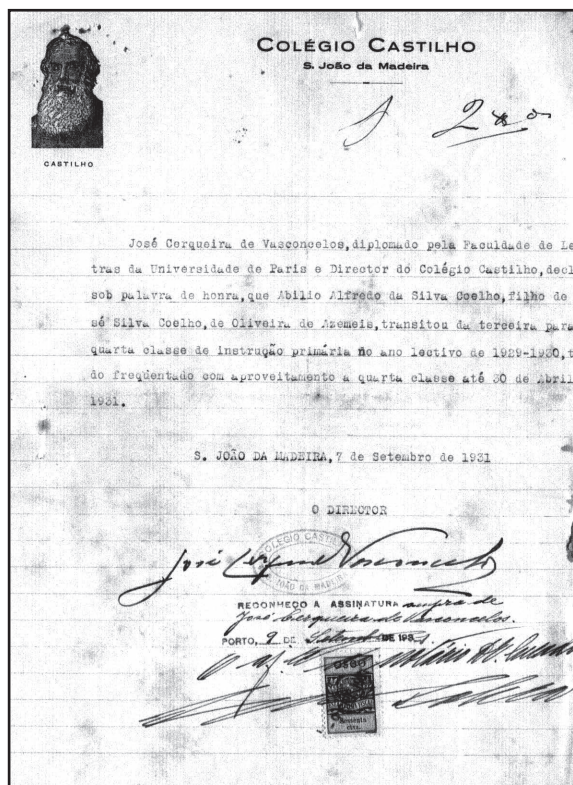 COLÉGIO CASTILHO
S. João da Madeira
CASTILHO
José Cerqueira de Vasconcelos, diplomado pela Faculdade de Le
tras da Universidade de Paris e Director do Colégio Castilho, decl
sob palavra de honra, que Abilio Alfredo da Silva Coelho, filho de
sé Silva Coelho, de Oliveira de Azemeis, transitou da terceira para
quarta classe de instrução primária no ano lectivo de 1929-1930, t
do freqüentado com aproveitamento a quarta classe até 30 de Abril
1931.
S. JOÃO DA MADEIRA, 7 de Setembro de 1931
O DIRECTOR
COLÉGIO CASTI
JOÃO DA MADEIR
José Cerqueira Vasconcelos
RECONHEÇO A ASSINATURA supra de
José Cerqueira de Vasconcelos.
PORTO, 9 DE Setemb DE 1931.